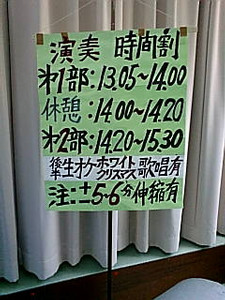 演奏 時間割
オ1部:13.05~14.00
休憩:14.00~14.20
オ2部:14.20~15.30
後半生オケホワイトクリスマス歌唱有
注:±5~6分伸縮有